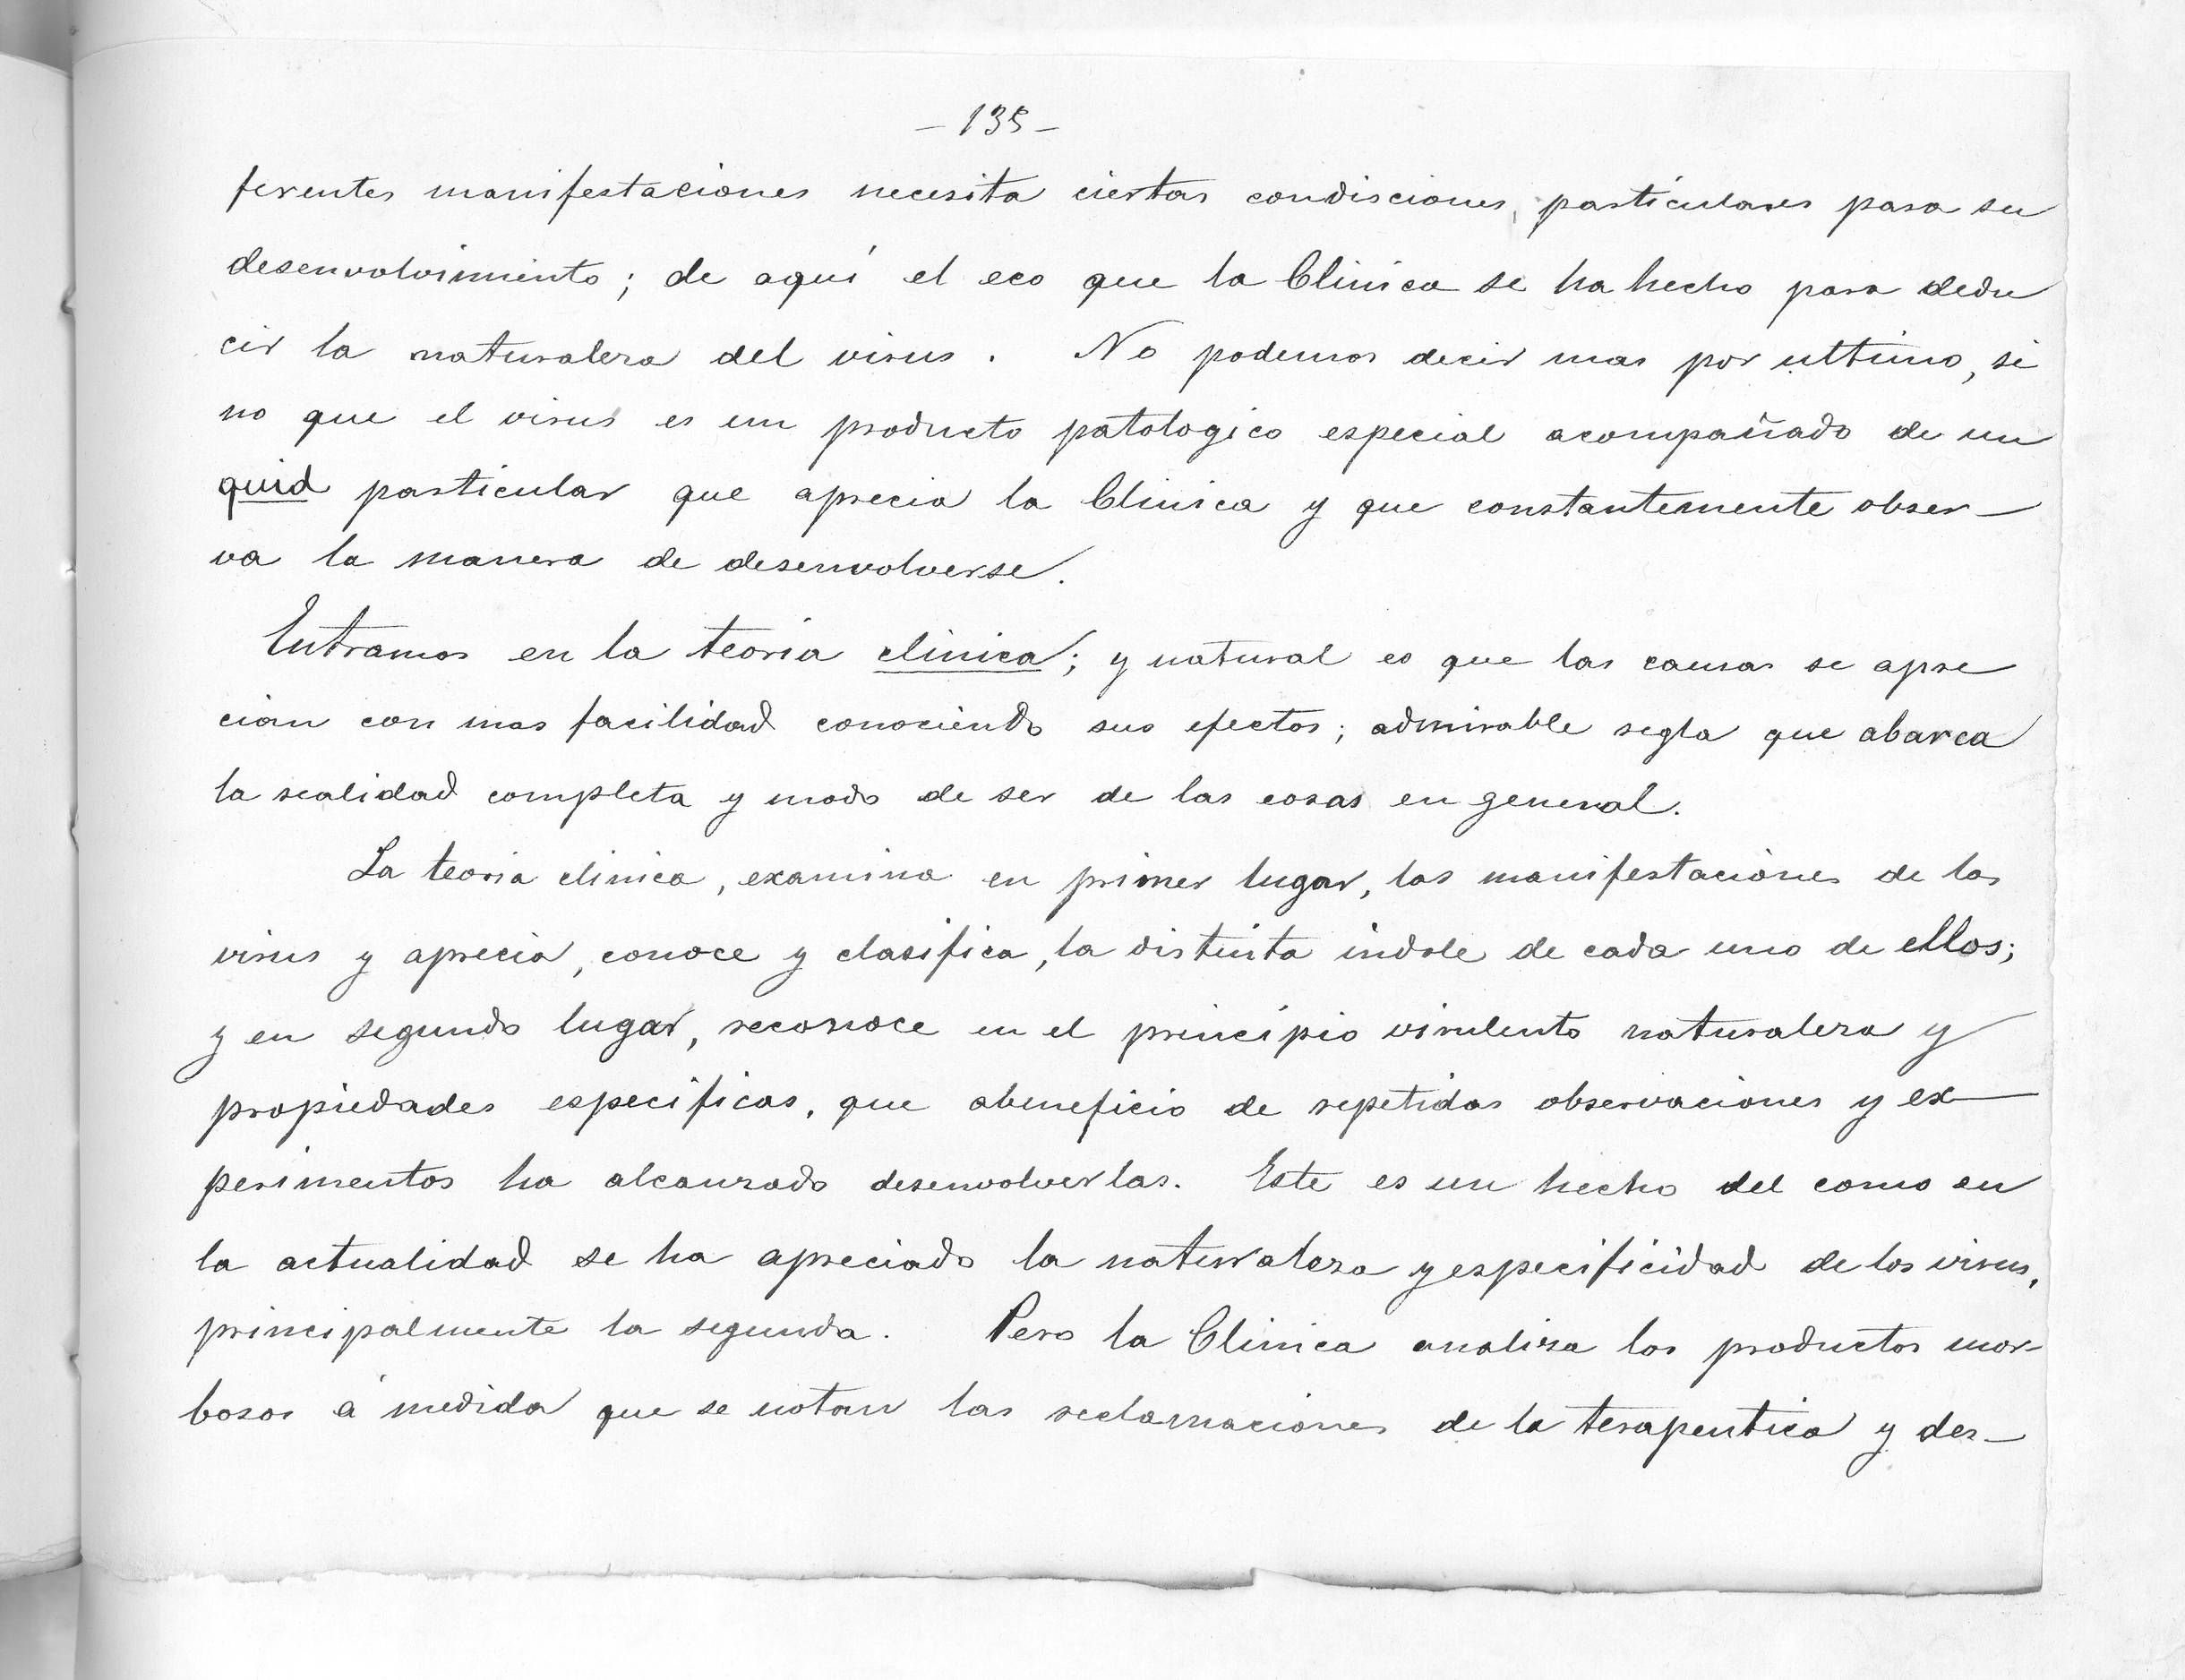 - 135 -
ferentes manifestaciones necesita ciertas condisciones, particulares para su
desenvolvimiento; de aquí el eco que la Clinica se ha hecho para dedu
cir la naturaleza del virus. No podemos decir mas por ultimo, si
no que el virus es un producto patologico especial acompañado de un
quid particular que aprecia la Clinica y que constantemente obser-
va la manera de desenvolverse.
Entramos en la teoria clinica; y natural es que las causas se apre
cian con mas facilidad conociendo sus efectos; admirable regla que abarca
la realidad completa y modo de ser de las cosas en general.
La teoria clinica, examina en primer lugar, las manifestaciones de los
virus y aprecia, conoce y clasifica, la distinta indole de cada uno de ellos;
y en segundo lugar, reconoce en el principio virulento naturaleza y
propiedades especificas, que abeneficio de repetidas observaciones y ex-
perimentos ha alcanzado desenvolverlas. Este es un hecho del como en
la actualidad se ha apreciado la naturaleza y especificidad de los virus,
principalmente la segunda. Pero la Clinica analiza los productos mor-
bosos á medida que se notan las reclamaciones de la terapeutica y des-